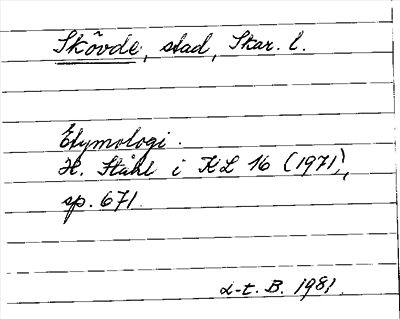 Skövde, stad, Skar. l.
Etymologi.
H. Ståhl i KL 16 (1971),
sp. 671.
L-t. B. 1981.